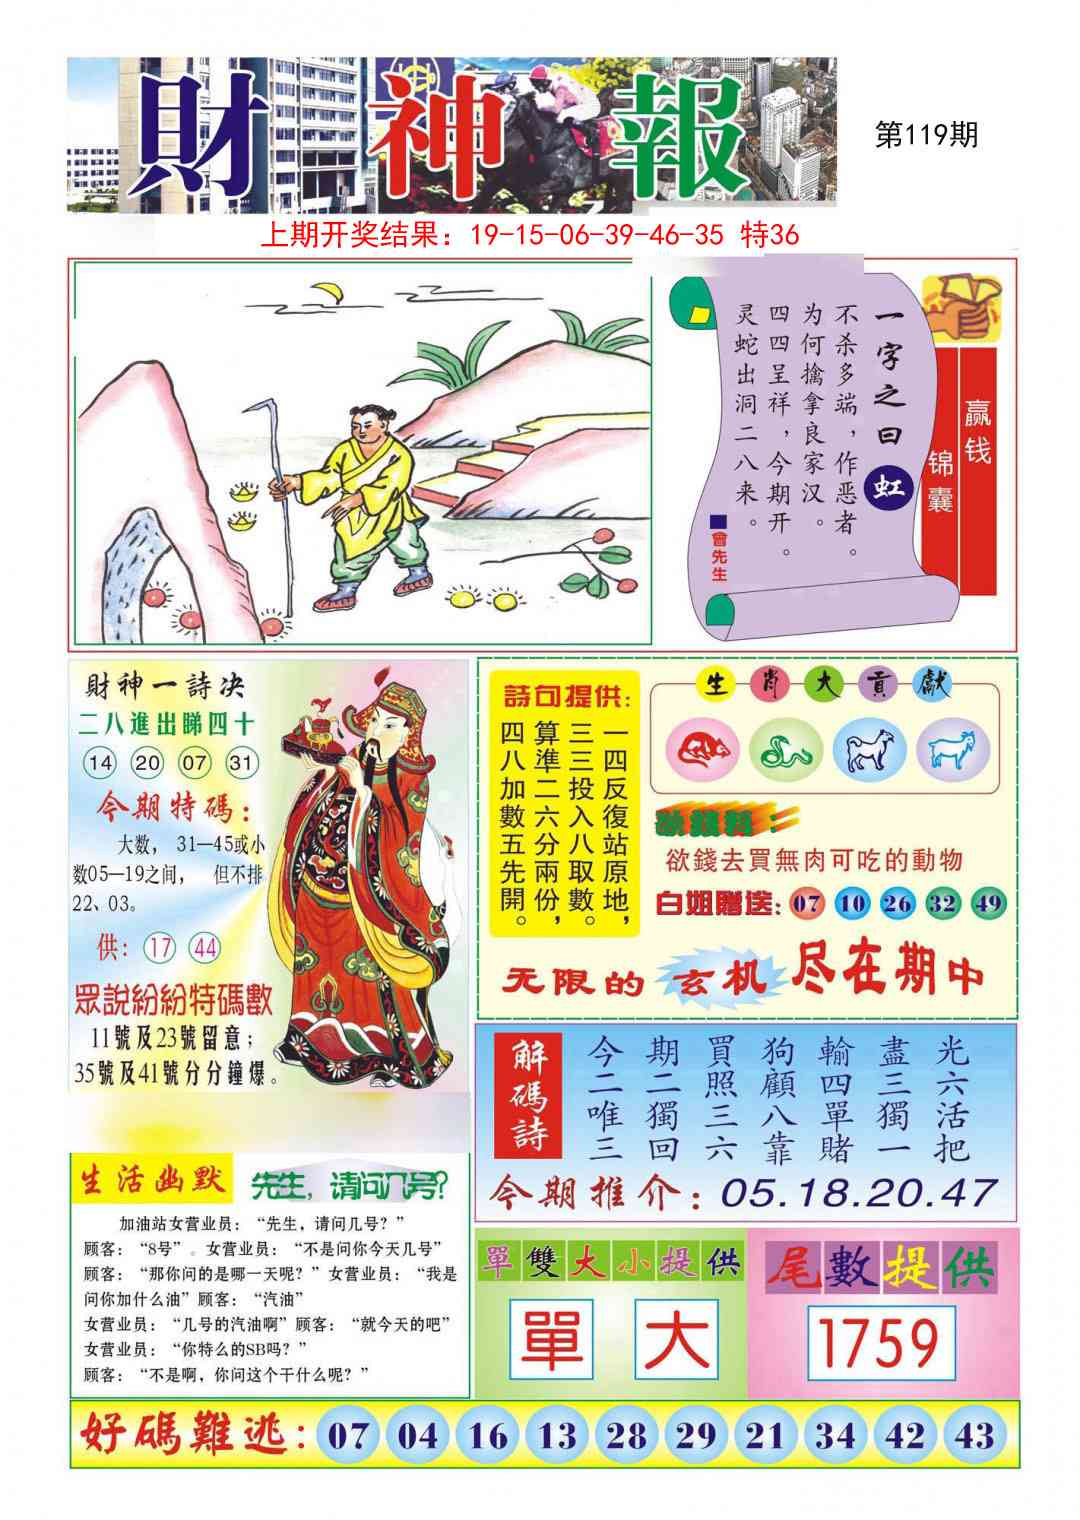 財神報
第119期
上期开奖结果：19-15-06-39-46-35 特36
赢钱
锦囊
一字之曰 虹
不杀多端，作恶者。
为何擒拿良家汉。
四四呈祥，今期开。
灵蛇出洞二八来。
會先生
財神一詩决
二八進出睇四十
14 20 07 31
今期特碼：
大数，31—45或小
数05—19之间，但不排
22、03。
供：17 44
眾說紛紛特碼數
11號及23號留意；
35號及41號分分鐘爆。
詩句提供：
一四反復站原地，
三三投入八取數。
算準二六分兩份，
四八加數五先開。
生肖大貢獻
欲錢料：
欲錢去買無肉可吃的動物
白姐赠送：07 10 26 32 49
无限的玄机尽在期中
解碼詩
今期買狗輸盡光
二二照顧四三六
唯獨三八單獨活
三回六靠賭一把
今期推介：05.18.20.47
生活幽默 先生，请问几号？
加油站女营业员：“先生，请问几号？”
顾客：“8号”。女营业员：“不是问你今天几号”
顾客：“那你问的是哪一天呢？”女营业员：“我是
问你加什么油”顾客：“汽油”
女营业员：“几号的汽油啊”顾客：“就今天的吧”
女营业员：“你特么的SB吗？”
顾客：“不是啊，你问这个干什么呢？”
單雙大小提供
單 大
尾數提供
1759
好碼難逃：07 04 16 13 28 29 21 34 42 43